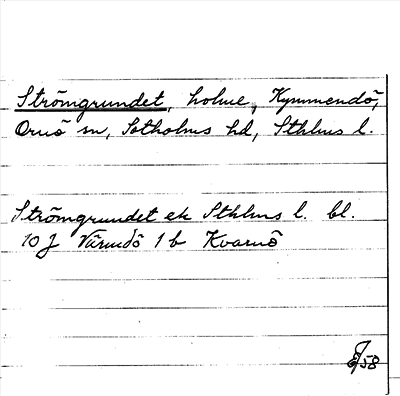 Strömgrundet, holme, Kymmendö,
Ornö sn, Sotholms hd, Sthlms l.
Strömgrundet ek Sthlms l. bl.
10 J Värmdö 1 b Kvarnö
/58